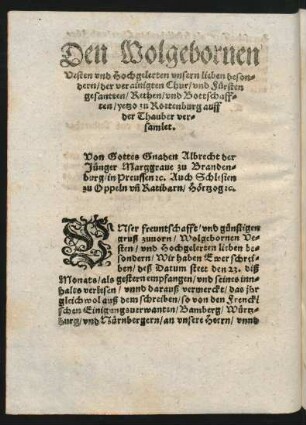 Den Wolgebornen
Vesten vnd Hochgelerten vnsern lieben beson-
dern/der verainigten Chur/vnd Fürsten
gesantten/Rethen/vnd Bottschafft-
ten/yetzo zu Rottenburg auff
der Thauber ver-
samlet.
Von Gottes Gnaden Albrecht der
Jünger Marggraue zu Branden-
burg in Preussen ꝛc. Auch Schlesien
zu Oppeln vñ Ratibarn/Hörtzog ꝛc.
VNser freuntschafft/vnd günstigen
gruß zuuorn/Wolgebornen Ve-
sten/vnd Hochgelerten lieben be-
sondern/Wir haben Ewer schrei-
ben/deß Datum steet den 23. diß
Monats/als gestern empfangen/vnd seines inn-
halts verlesen/vnnd darauß vermerckt/das jhr
gleich wol auß dem schreiben/so von den Frencki
schen Einigungsuerwanten/Bamberg/Würtz-
burg/vnd Nürnbergern/an vnsere Herrn/vnnd